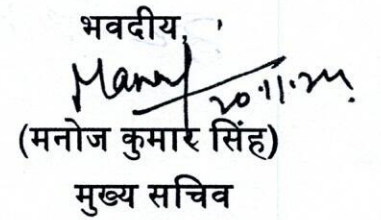 भवदीय,
Manoj
20.11.24
(मनोज कुमार सिंह)
मुख्य सचिव